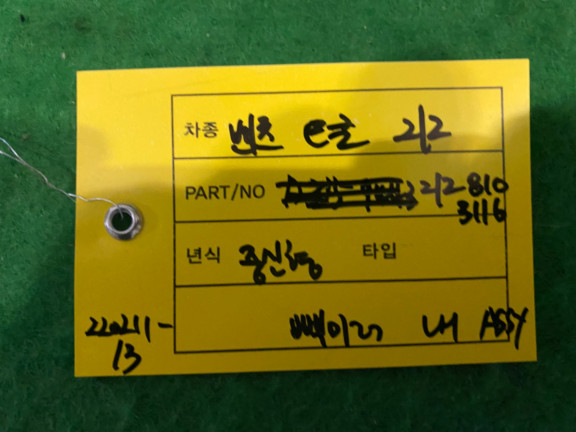 차종 벤츠 e클 212
PART/NO 212 810
3116
년식 중신형 타입
220211-
13
빽미러 내 ASSY